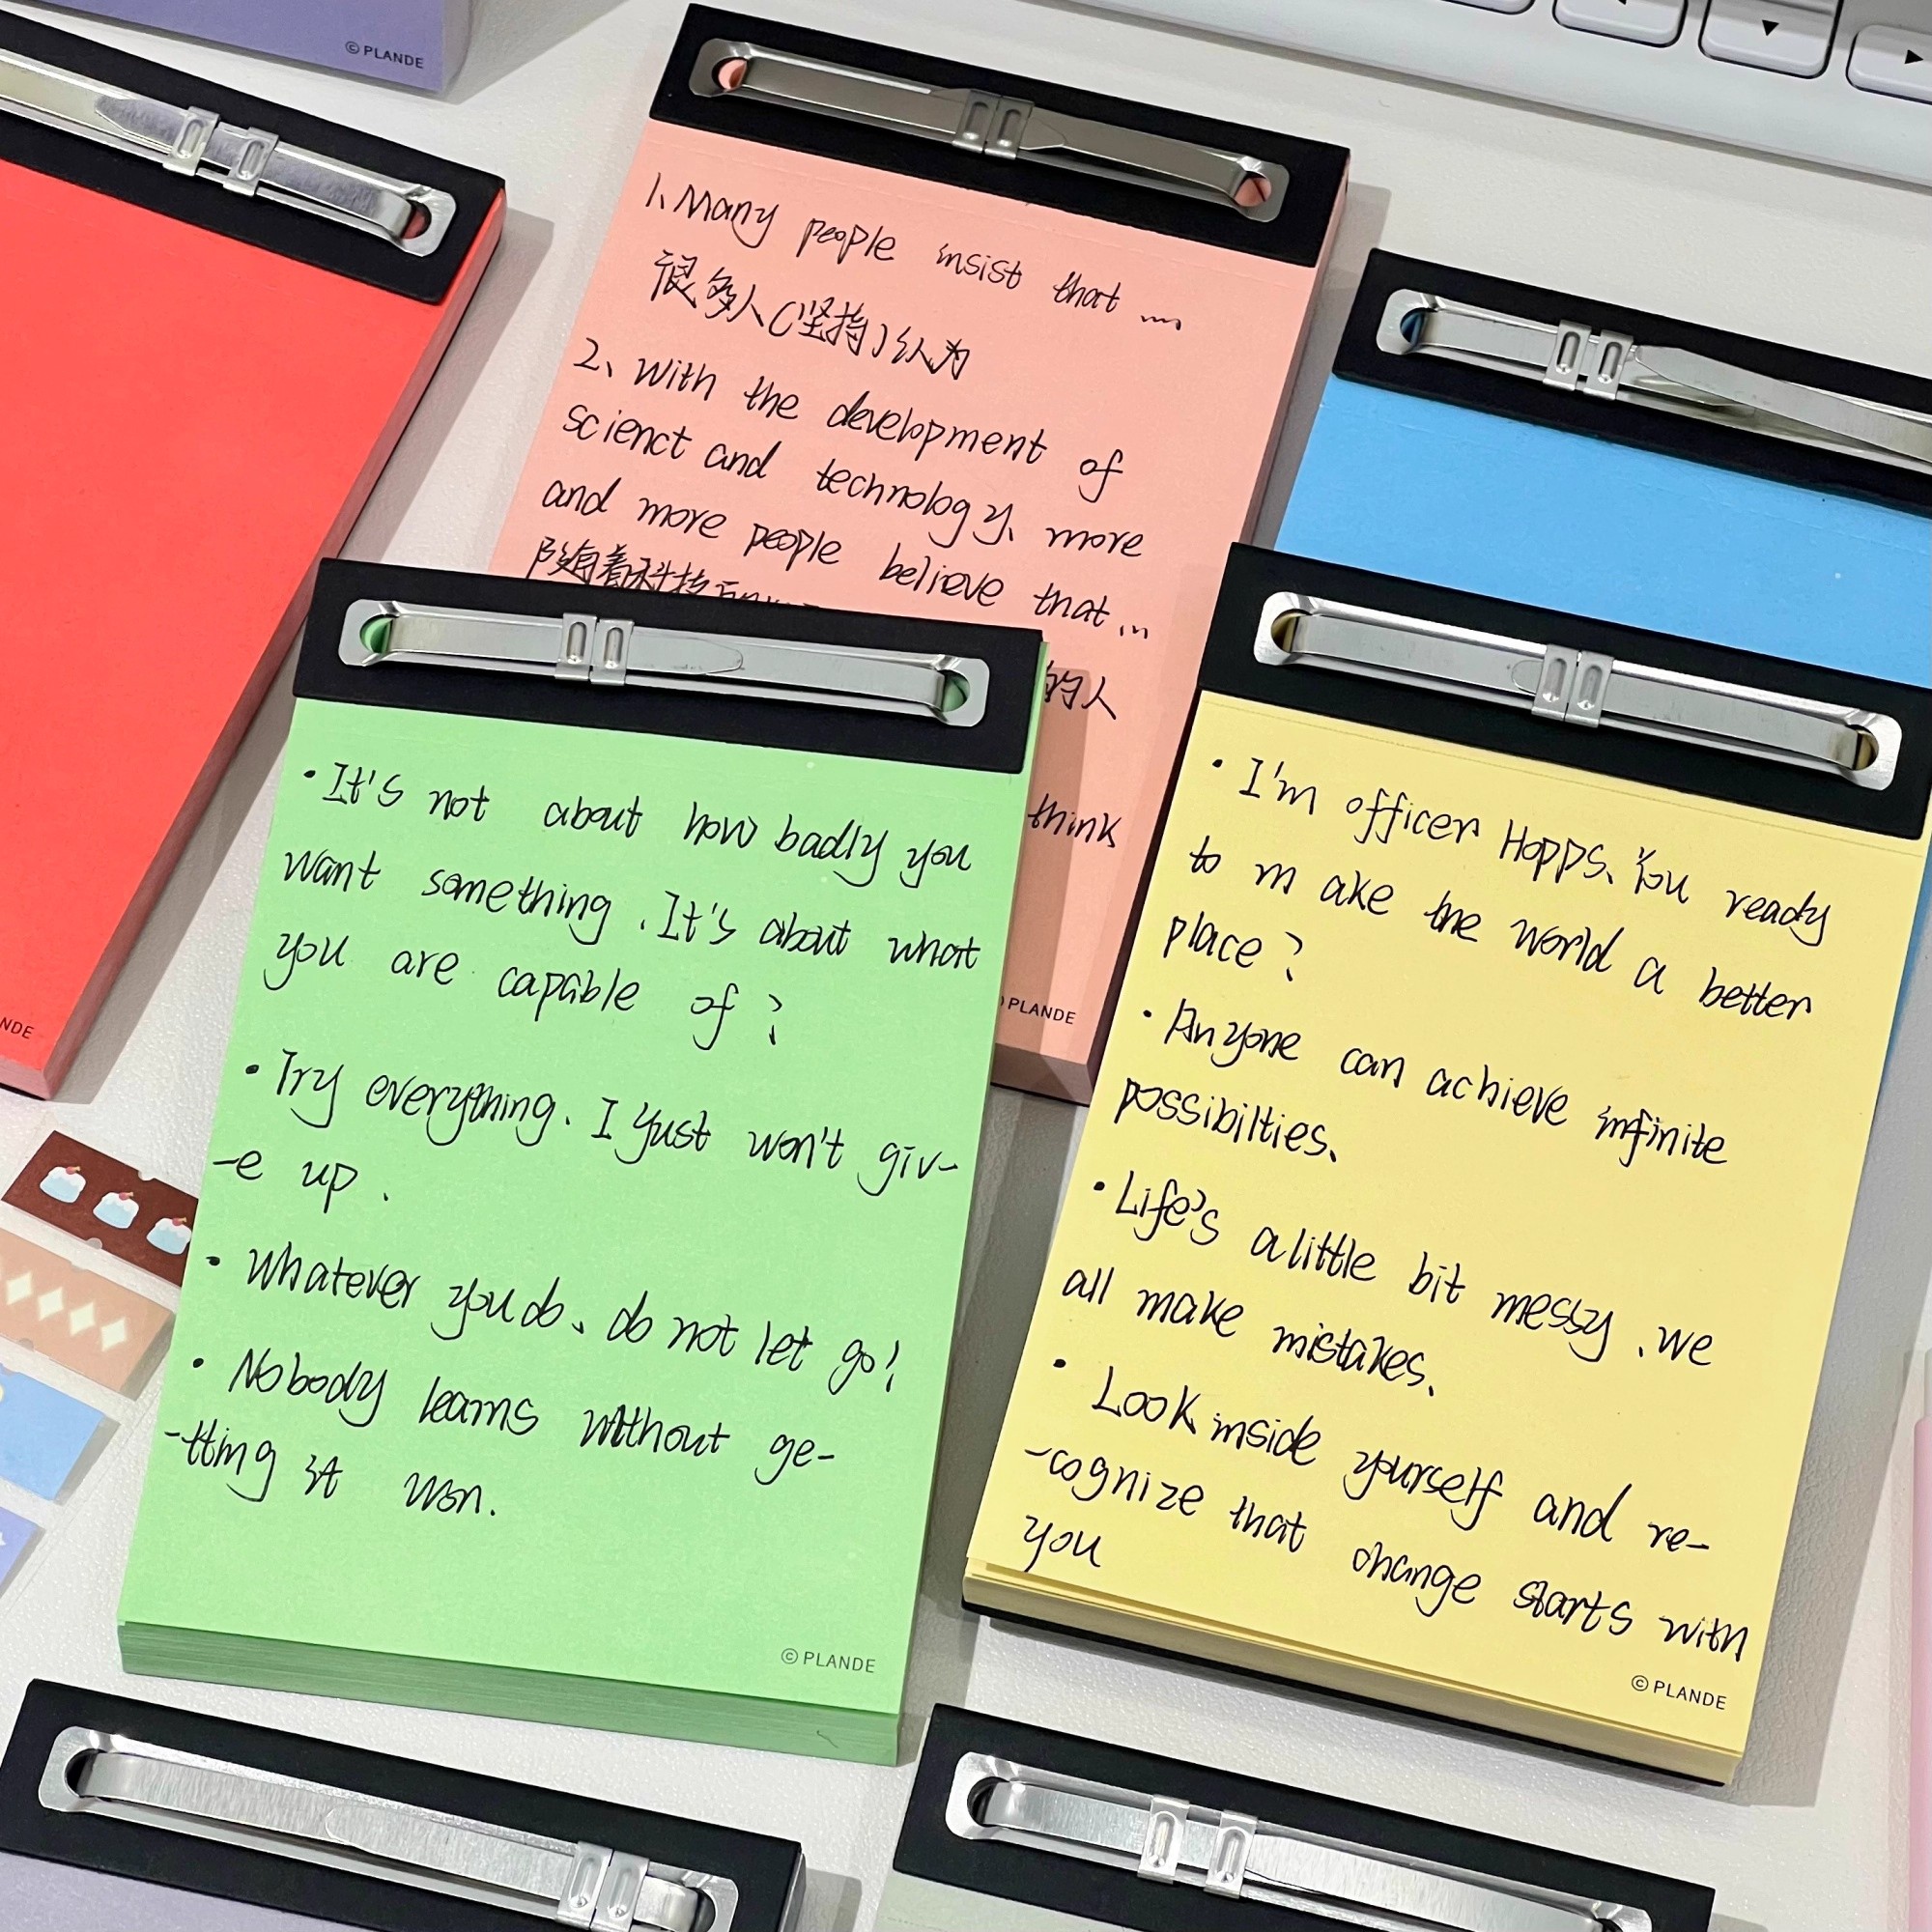 © PLANDE
1、Many people insist that ...
很多人(坚持)认为
2、With the development of
scienct and technology、more
and more people believe that...
随着科技
的人
think
PLANDE
NDE
• It's not about how badly you
want something . It's about what
you are capable of ?
• Try everything. I just won't giv-
-e up .
• Whatever you do、do not let go!
• Nobody learns without ge-
-tting it won.
© PLANDE
• I'm officer Hopps、You ready
to make the world a better
place ?
• Anyone can achieve infinite
possibilties、
• Life's a little bit messy .we
all make mistakes、
• Look inside yourself and re-
-cognize that change starts with
you
© PLANDE